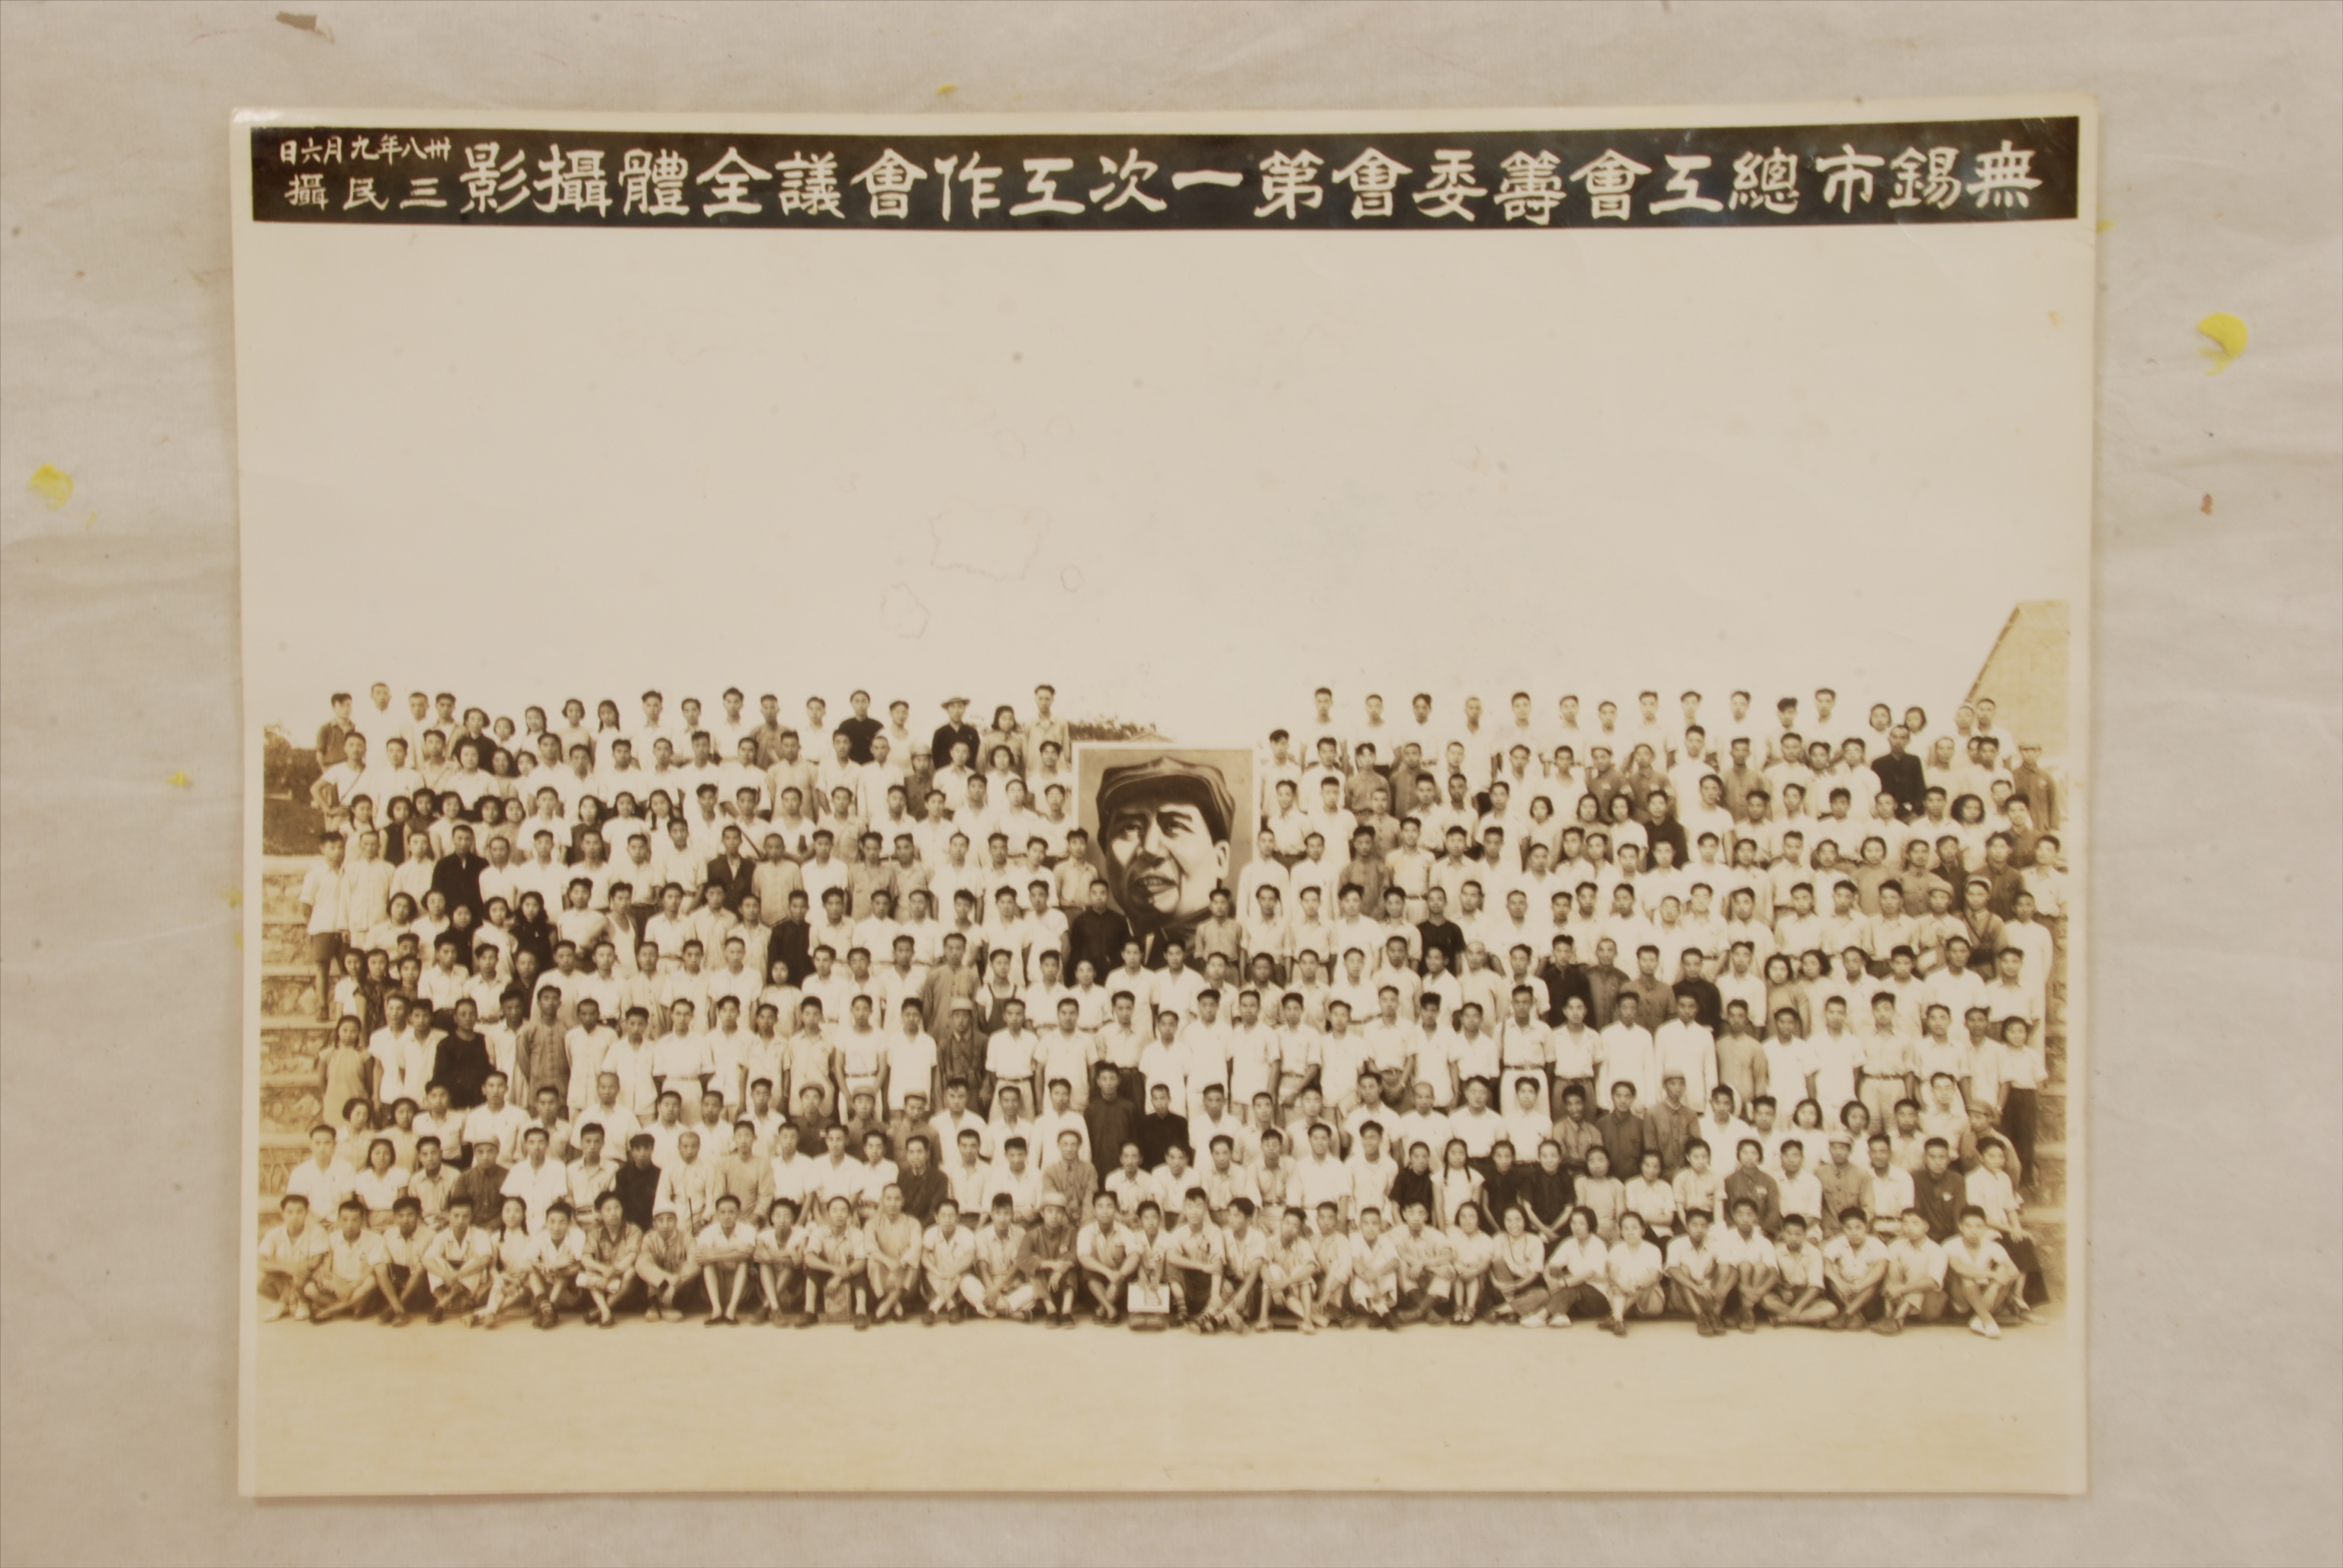 無錫市總工會籌委會第一次工作會議全體攝影
卅八年九月六日
三民攝